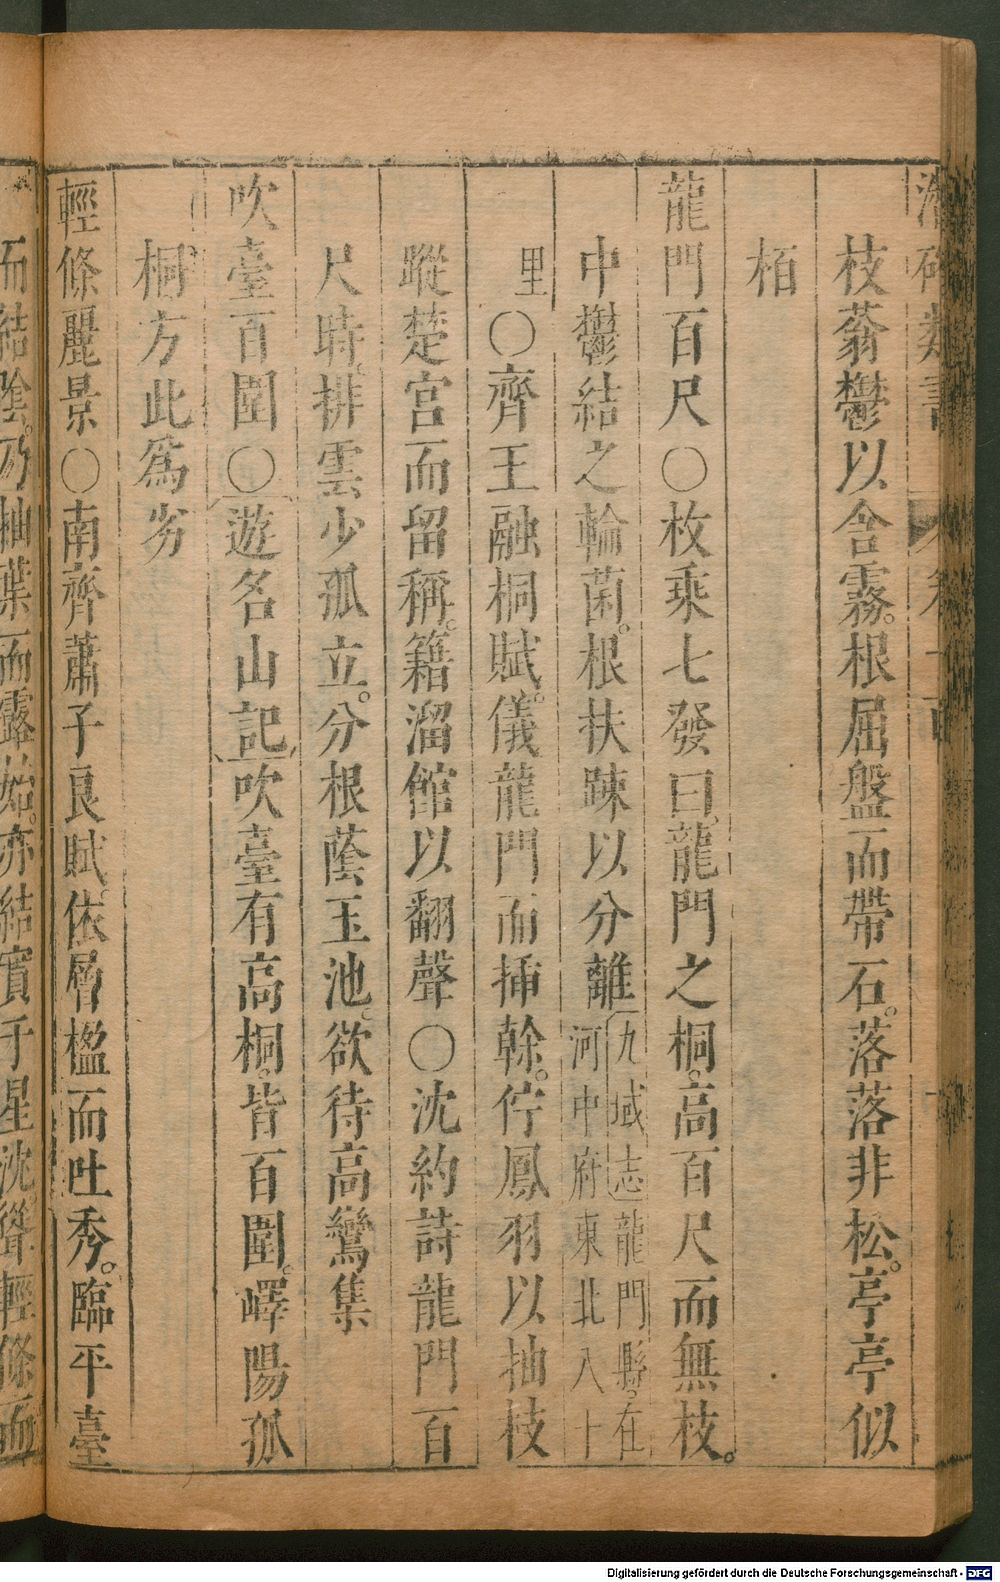 枝蓊鬱以含霧。根屈盤而帶石。落落非松。亭亭似
栢
龍門百尺〇枚乘七發曰。龍門之桐。高百尺而無枝。
中鬱結之輪菌。根扶踈以分離九域志龍門縣。在
河中府東北八十
里〇齊王融桐賦。儀龍門而揷幹。佇鳳羽以抽枝
蹤楚宮而留稱。籍溜館以翻聲〇沈約詩龍門百
尺時。排雲少孤立。分根蔭玉池。欲待高鸞集
吹臺百圍〇遊名山記吹臺有高桐。皆百圍。嶧陽孤
桐。方此爲劣
輕條麗景〇南齊蕭子良賦。依層楹而吐秀。臨平臺
而結陰。乃抽葉而露始。亦結實于星沈。聳輕條而
類書
Digitalisierung gefördert durch die Deutsche Forschungsgemeinschaft - DFG